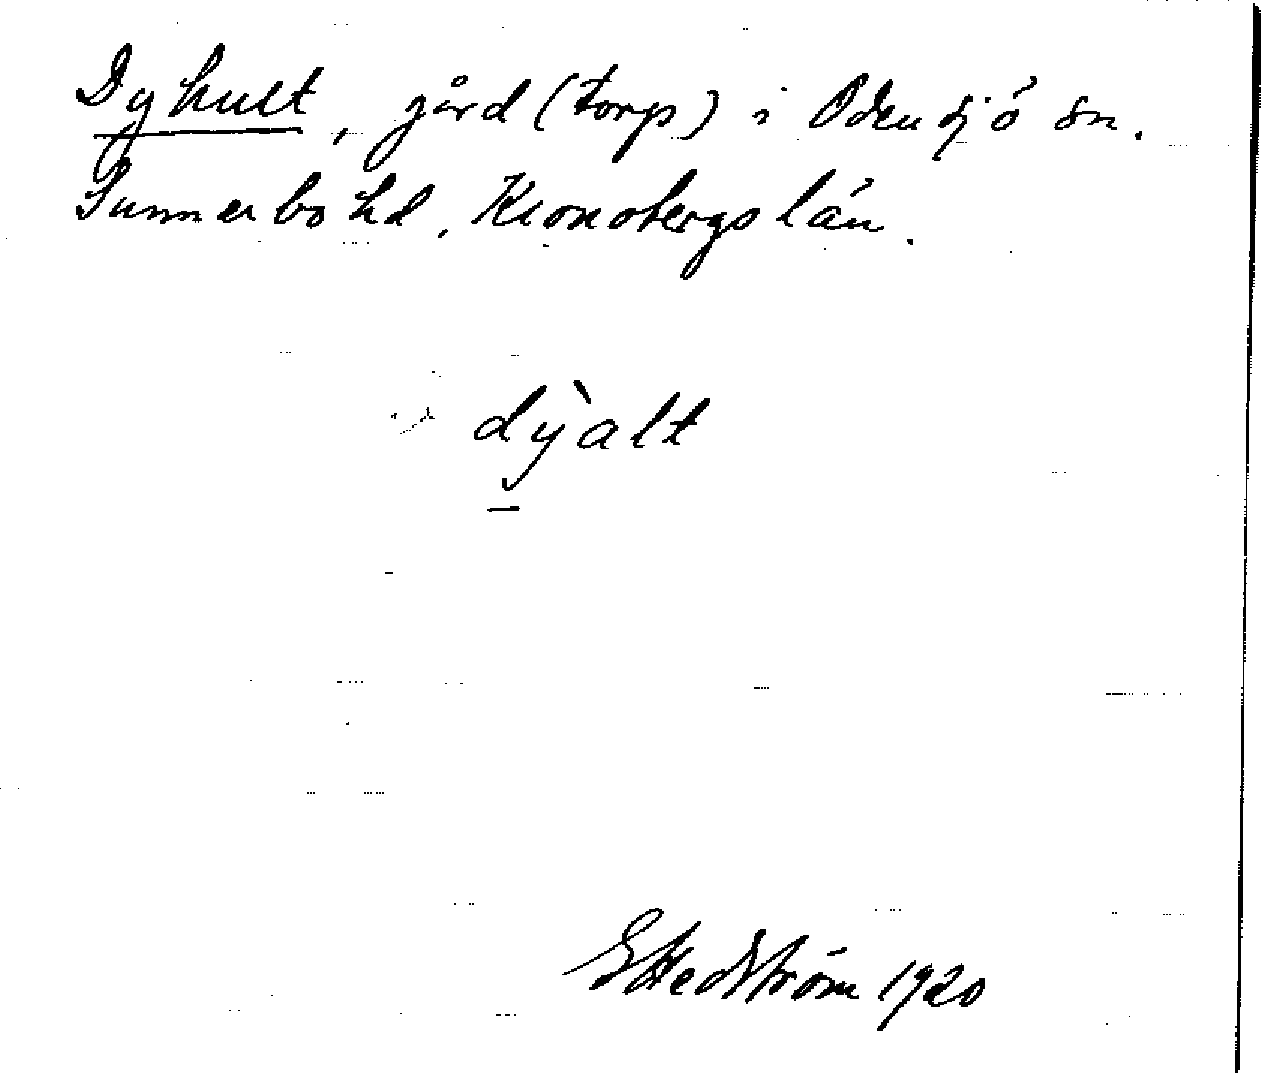 Dyhult, gård (torp) i Odensjö sn.
Sunnerbo hd, Kronobergs län.
dỳ̱alt
E Hedström 1920